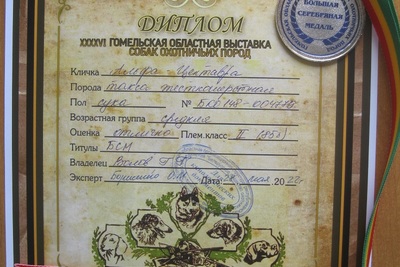 ДИПЛОМ
XXXXVI ГОМЕЛЬСКАЯ ОБЛАСТНАЯ ВЫСТАВКА
СОБАК ОХОТНИЧЬИХ ПОРОД
Кличка Альфа Центавра
Порода такса жесткошерстная
Пол сука №
Возрастная группа средняя
Оценка отлично Плем.класс II
Титулы БСМ
Владелец
Эксперт Дата: 28 мая 2022г
БОЛЬШАЯ
СЕРЕБРЯНАЯ
МЕДАЛЬ